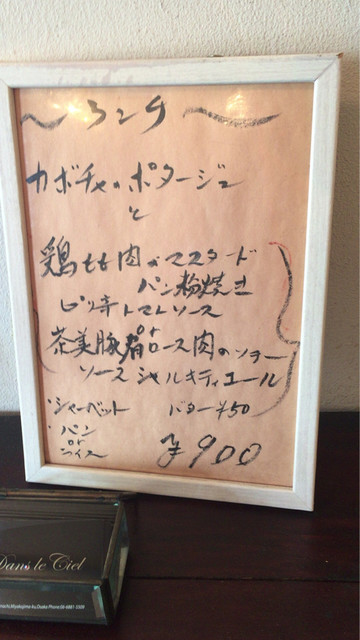 〜ランチ〜
カボチャのポタージュ
と
鶏もも肉のマスタード
パン粉焼き
ピリ辛トマトソース
or
茶美豚肩ロース肉のソテー
ソースシャルキティエール
・シャーベット バター¥50
・パン
or
ライス
¥900
Dans le Ciel